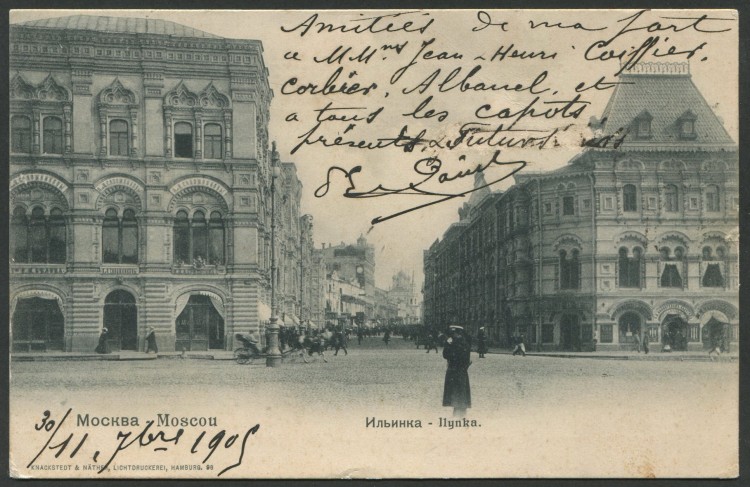 Amitiés de ma part
a M Mrs Jean-Henri Coiffier,
Corbier, Albanel, et
a tous les capots,
présents, & futurs
Москва - Moscou
Ильинка - Ilynka.
30/11, 7bre 1905
KNACKSTEDT & NÄTHER, LICHTDRUCKEREI, HAMBURG. 98